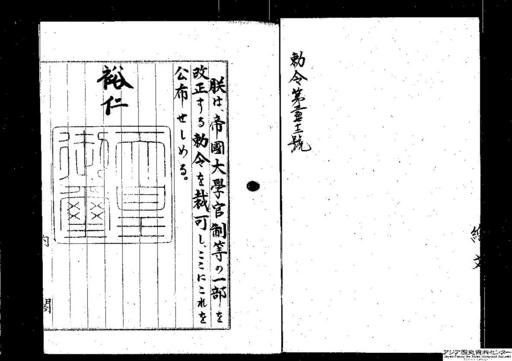 朕は、帝國大學官制等の一部を
改正する勅令を裁可し、ここにこれを
公布せしめる。
裕仁
天皇
御璽
内閣
アジア歴史資料センター